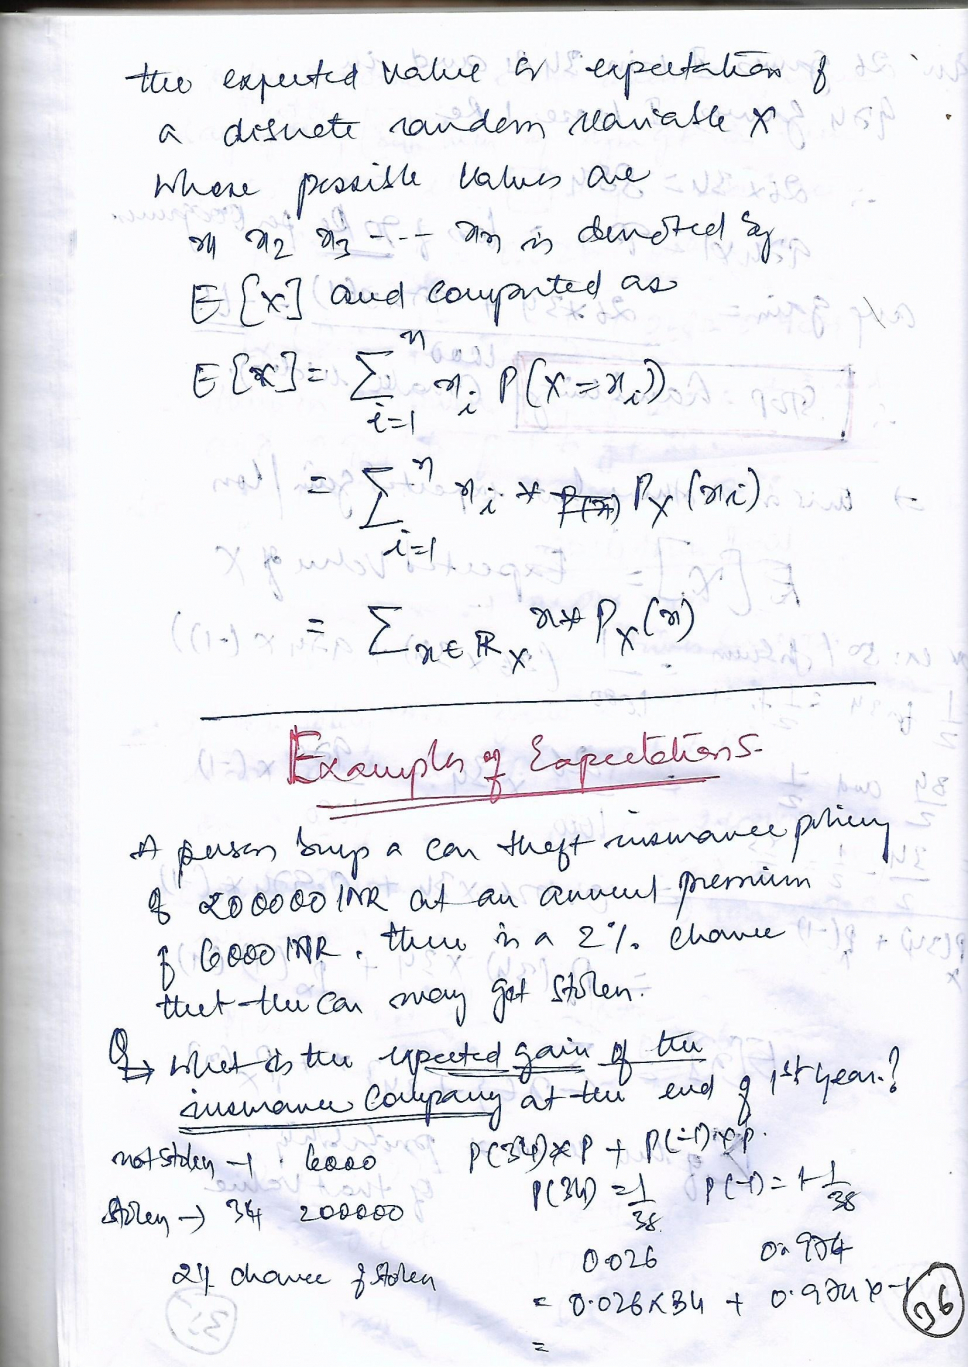 the expected value or expectation of
a discrete random variable X
whose possible values are
x1 x2 x3 --- xn is denoted by
E[X] and computed as
E[x] = ∑_{i=1}^{n} x_i P(X=x_i)
= ∑_{i=1}^{n} x_i * P_X(x_i)
= ∑_{x∈R_X} x * P_X(x)
Examples of Expectations-
A person buys a car theft insurance policy
of 200000 INR at an annual premium
of 6000 INR. there is a 2% chance
that the car may get stolen.
Q → what is the expected gain of the
insurance company at the end of 1st year.?
not stolen -1 6000 P(34)*P + P(-1)*P.
stolen → 34 200000 P(34) = 1/38 P(-1) = 1-1/38
0.026 0.974
2% chance of stolen
= 0.026×34 + 0.974×-1
=
36